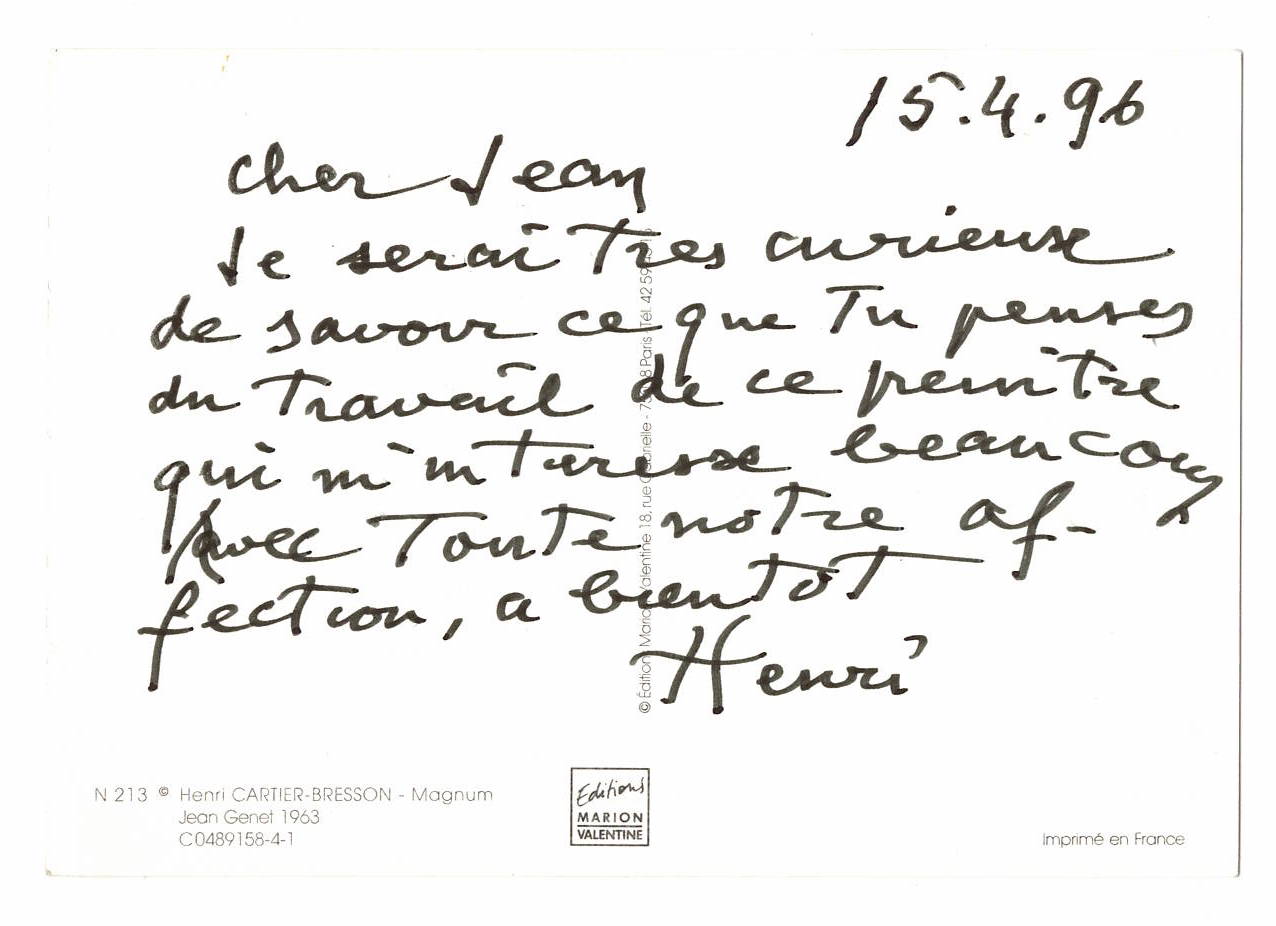 15.4.96
cher Jean
Je serai tres curieuse
de savoir ce que Tu penses
du travail de ce peintre
qui m'interesse beaucoup
Avec Toute notre af-
fection, a bientôt
Henri
© Editions Marion Valentine 18, rue Gabrielle - 75018 Paris Tél. 42 59
N 213 © Henri CARTIER-BRESSON - Magnum
Jean Genet 1963
C0489158-4-1
Editions
MARION
VALENTINE
Imprimé en France